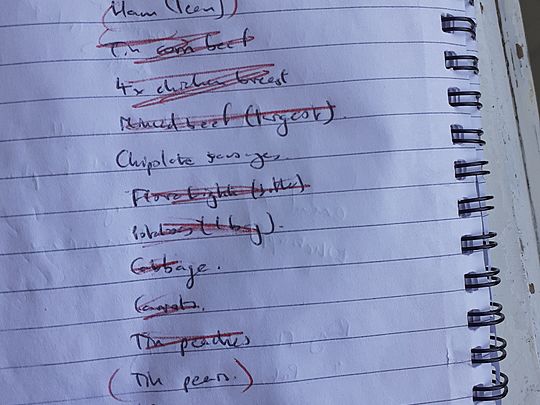 Ham (lean)
Tin corn beef
4x chicken breast
Minced beef (largest).
Chipolate sausages.
Flora light (
Potatoes (1 bag).
Cabbage.
Carrots.
Tin peaches
(Tin pears.)